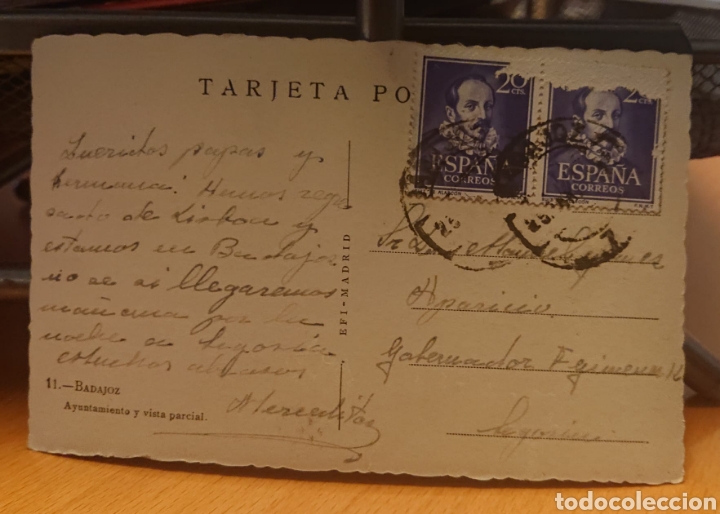 TARJETA PO
20 CTS.
ESPAÑA
CORREOS
ESPAÑA
CORREOS
Queridos papas y
hermana: Hemos regre
sado de Lisboa y
estamos en Badajoz
no se si llegaremos
mañana por la
noche a Segovia
Muchos abrazos
Merceditas
11.—BADAJOZ
Ayuntamiento y vista parcial.
EFI-MADRID
Sr Don
Aparicio
Gobernador
Segovia
todocoleccion